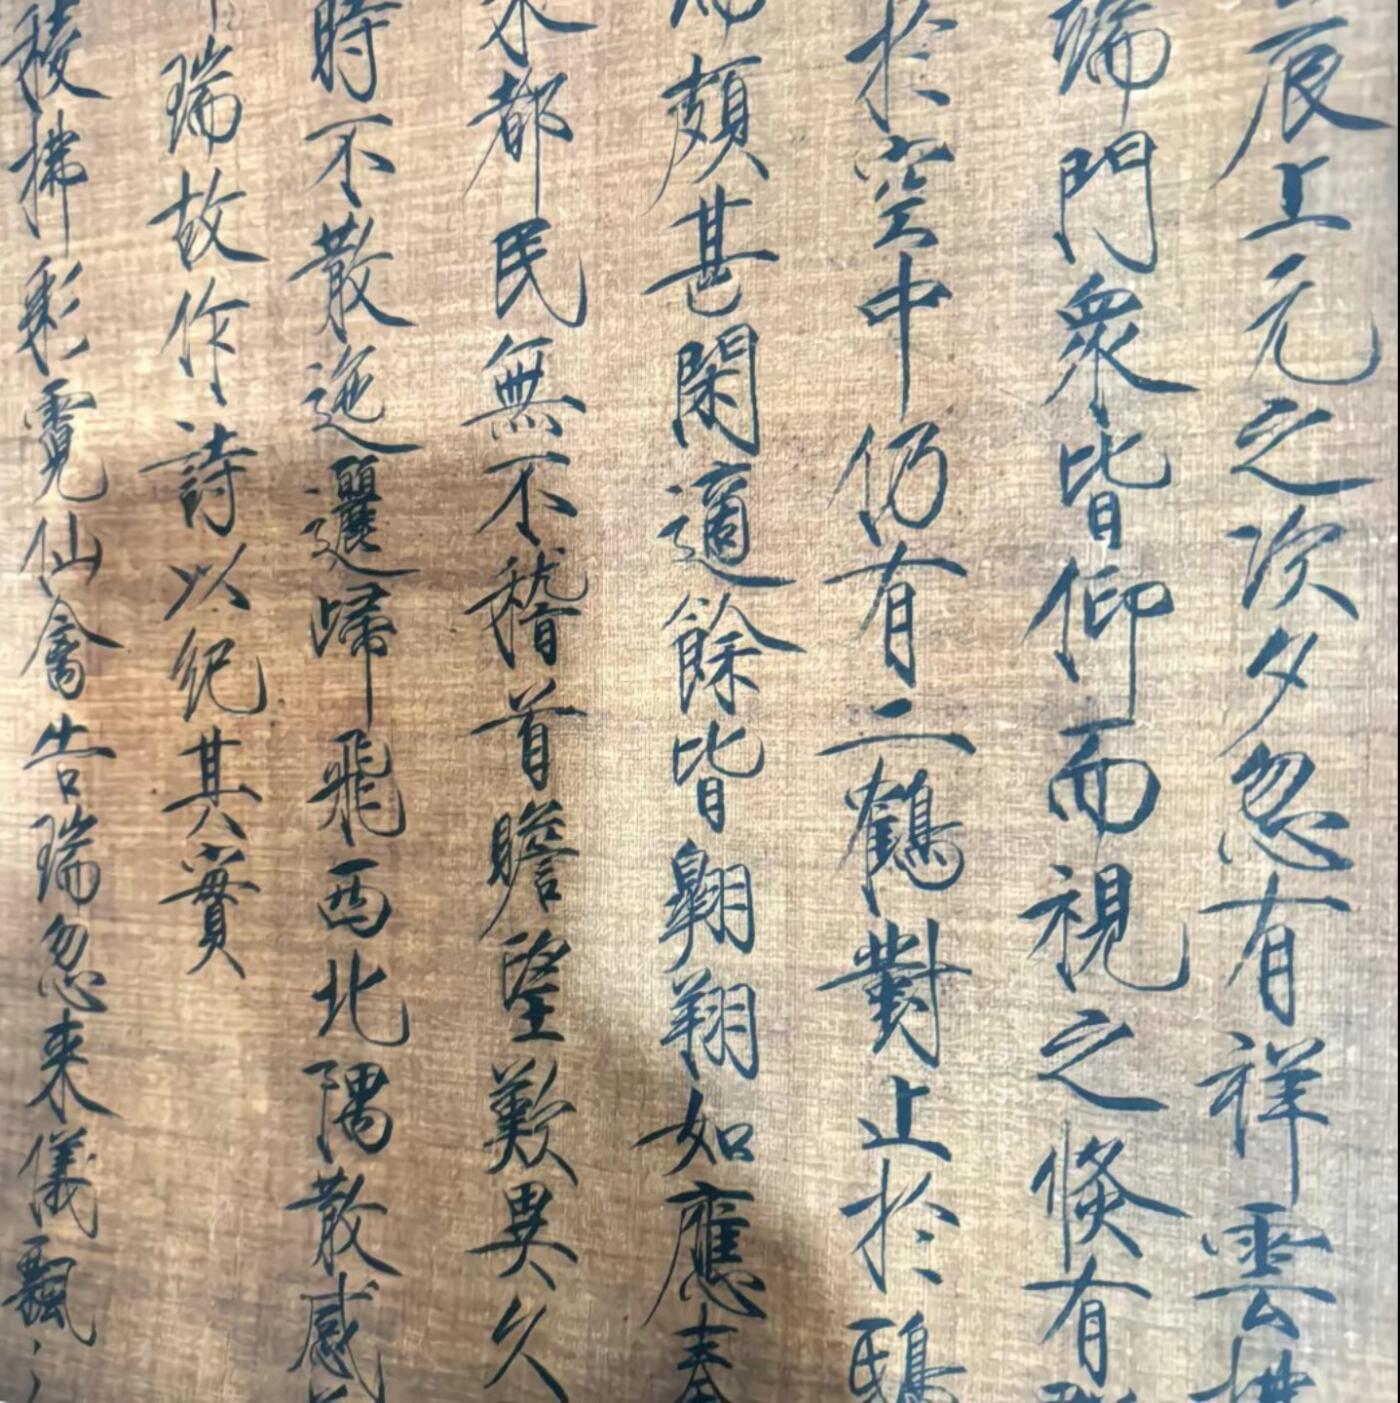 辰上元之次夕忽有祥雲拂
端門衆皆仰而視之倐有
於空中仍有二鶴對止於鴟
頗甚閑適餘皆翱翔如應奏
都民無不稽首瞻望歎異久
時不散迤邐歸飛西北隅散感
瑞故作詩以紀其實
稜拂彩霓仙禽告瑞忽来儀飄